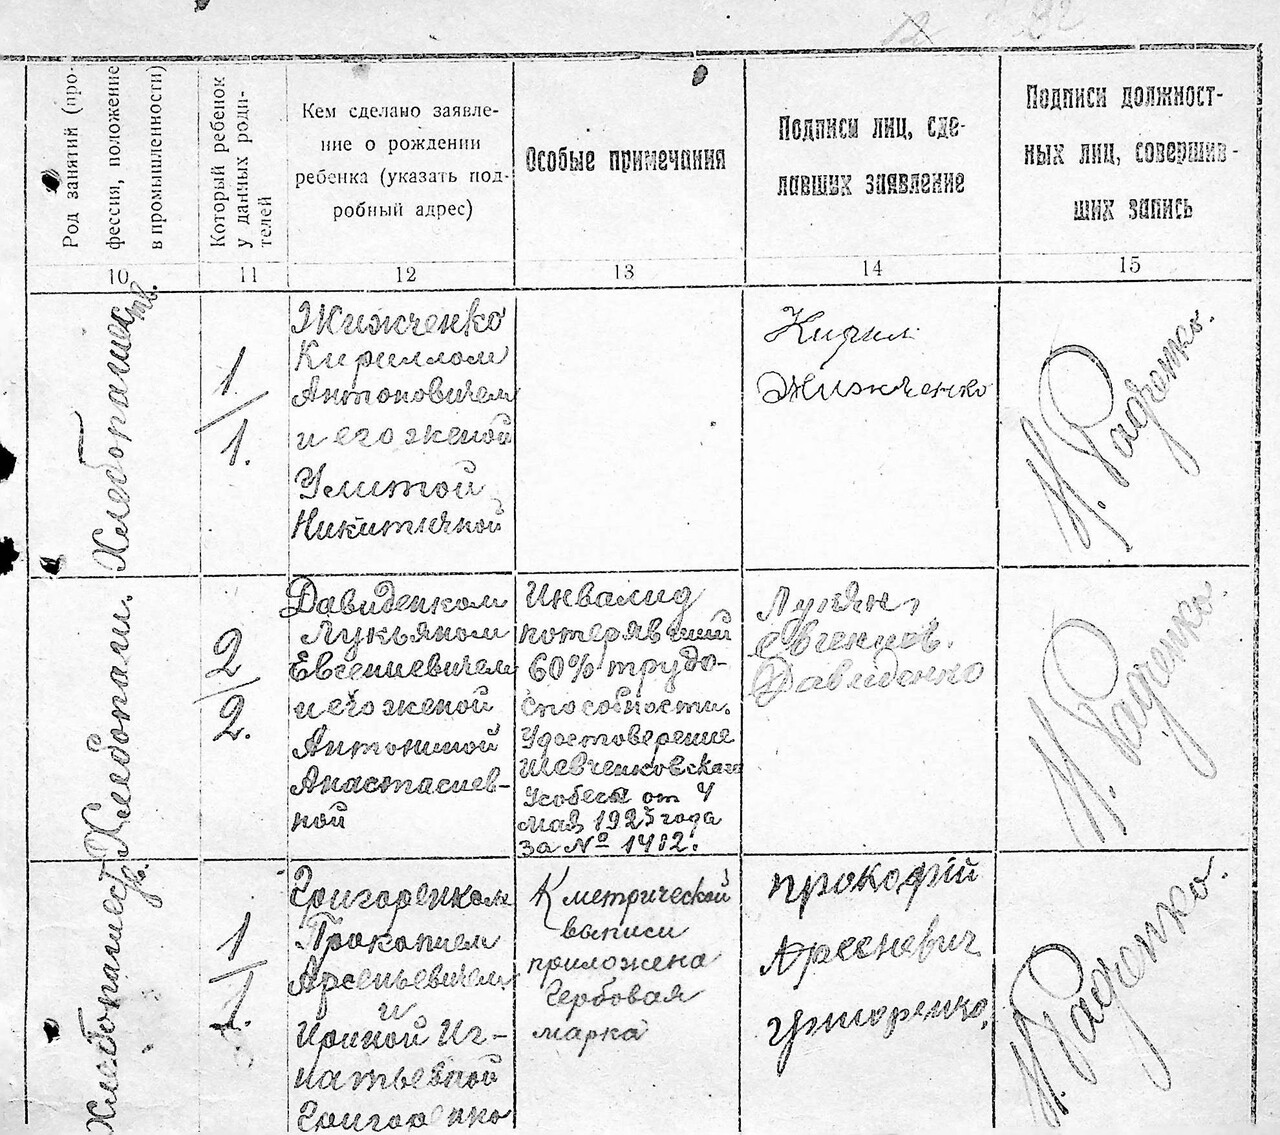 82
Род занятий (про-
фессия, положение
в промышленности)
Который ребенок
у данных роди-
телей
Кем сделано заявле-
ние о рождении
ребенка (указать под-
робный адрес)
Особые примечания
Подписи лиц, сде-
лавших заявление
Подписи должност-
ных лиц, совершив-
ших запись
10
11
12
13
14
15
Хлебопашест
тв.
1
1.
Жижченко
Кириллом
Антоновичем
и его женой
Улитой
Никитичной
Кирил
Жижченко
Н. Радченко.
Хлебопаш.
2
2.
Давиденком
Лукьяном
Евсениевичем
и его женой
Антониной
Анастасиев-
ной
Инвалид
потерявший
60% трудо-
способности.
Удостоверение
Шевченковскаго
от 4
мая 1925 года
за № 1412.
Лукян,
Давиденко
Н. Радченко.
Хлебопашест
в.
1
1.
Григоренком
Прокопием
Арсеньевичем
и
Ириной Иг-
натьевной
Григоренко
К метрической
выписи
приложена
гербовая
марка
прокофій
Арсеневич
григоренко,
Н. Радченко.